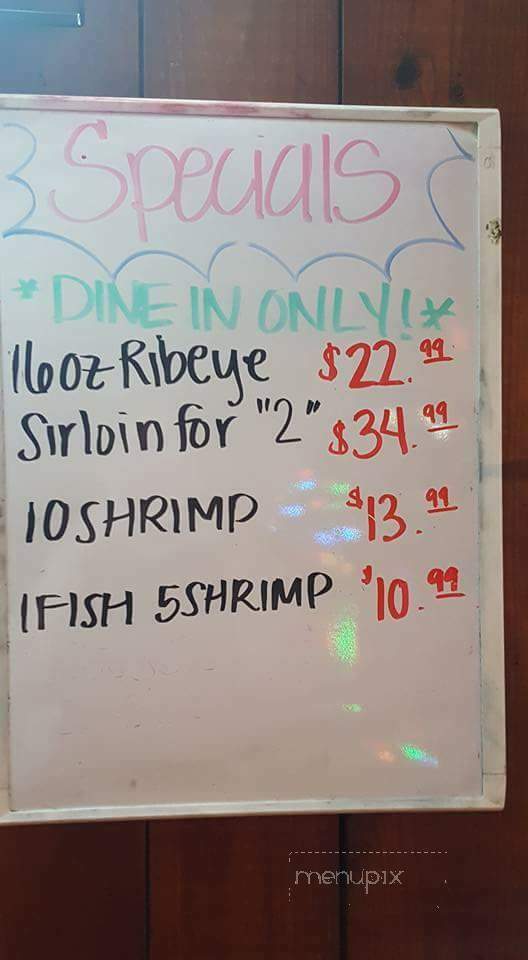 Specials
* DINE IN ONLY! *
16oz Ribeye $22.99
Sirloin for "2" $34.99
10 SHRIMP $13.99
1 FISH 5 SHRIMP $10.99
menupix